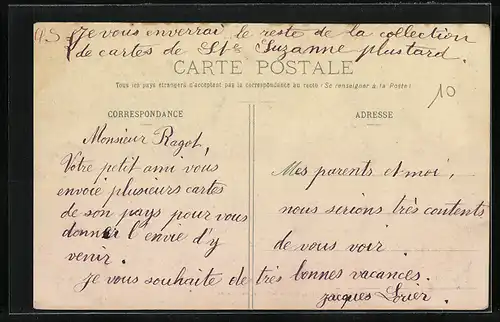 P.S Je vous enverrai le reste de la collection
de cartes de Ste Suzanne plustard.
CARTE POSTALE
Tous les pays étrangers n'acceptent pas la correspondance au recto (Se renseigner à la Poste)
10
CORRESPONDANCE
Monsieur Ragot,
Votre petit ami vous
envoie plusieurs cartes
de son pays pour vous
donner l'envie d'y
venir.
ADRESSE
Mes parents et moi,
nous serions très contents
de vous voir.
Je vous souhaite de très bonnes vacances.
Jacques Lorier.